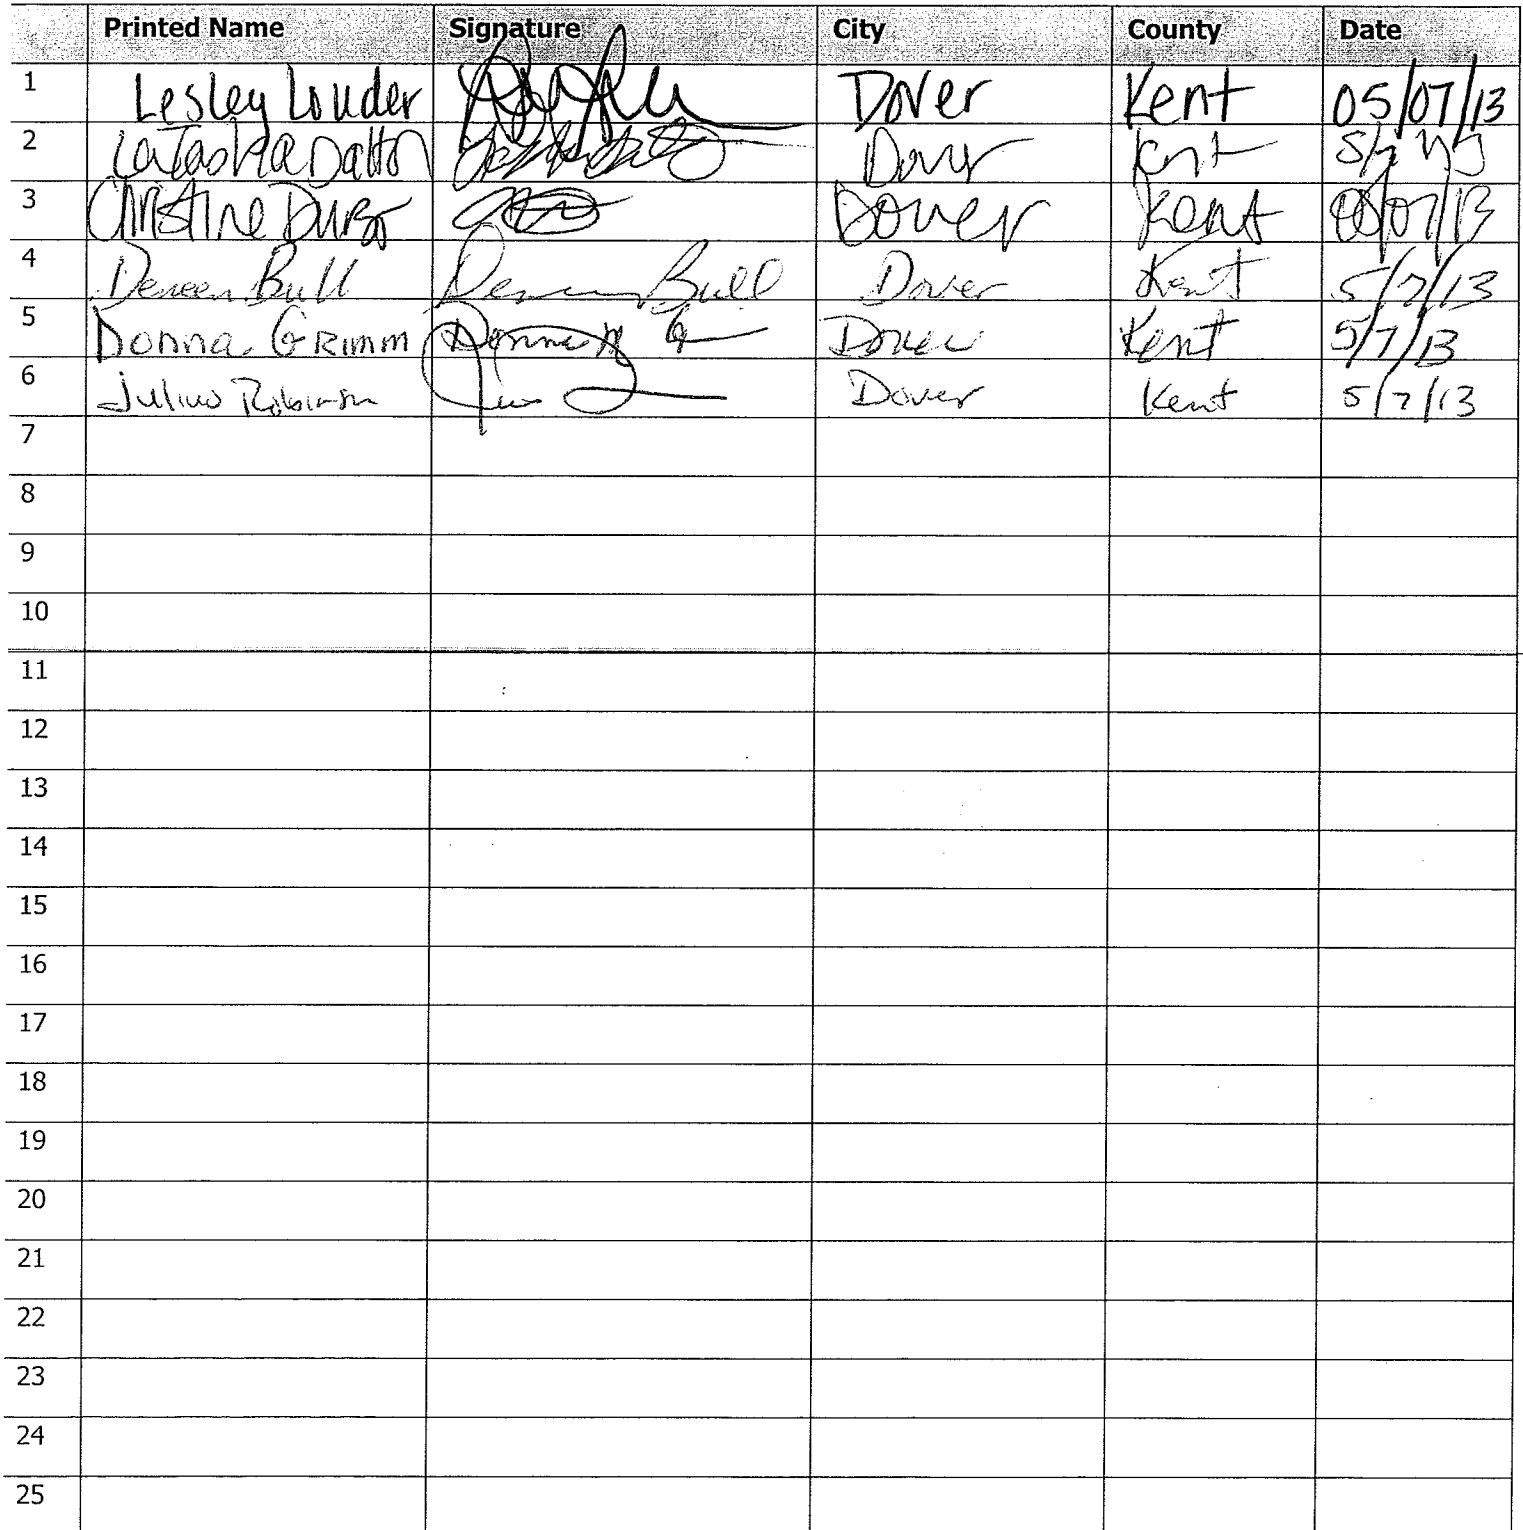 Printed Name Signature City County Date
1 Lesley Louder Dover Kent 05/07/13
2 LaTasha Dalton Dover Kent
3 Christine Dover Kent 05/07/13
4 Dereen Bull Bull Dover Kent 5/7/13
5 Donna GRIMM Donna M G Dover Kent 5/7/13
6 Julius Robinson Dover Kent 5/7/13
7
8
9
10
11
12
13
14
15
16
17
18
19
20
21
22
23
24
25